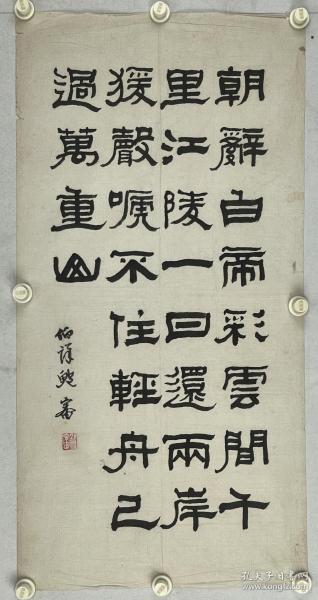 朝辭白帝彩雲間千
里江陵一日還兩岸
猨聲啼不住輕舟已
過萬重山
孔夫子旧书网